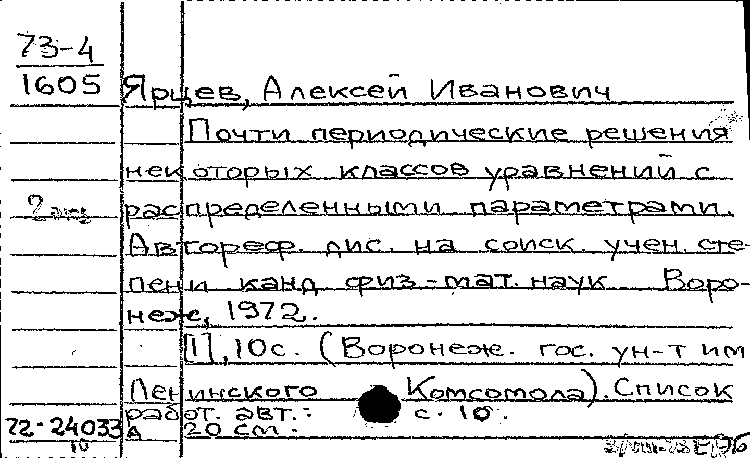 73-4
1605
Ярцев, Алексей Иванович
Почти периодические решения
некоторых классов уравнений с
распределенными параметрами.
2 экз
Автореф. дис. на соиск. учен. сте-
пени канд физ-мат. наук Воро-
неж, 1972.
[1], 10 с. (Воронеж. гос. ун-т им
Ленинского Комсомола). Список
работ. авт.: с. 10.
72-24033 д 20 см.
10